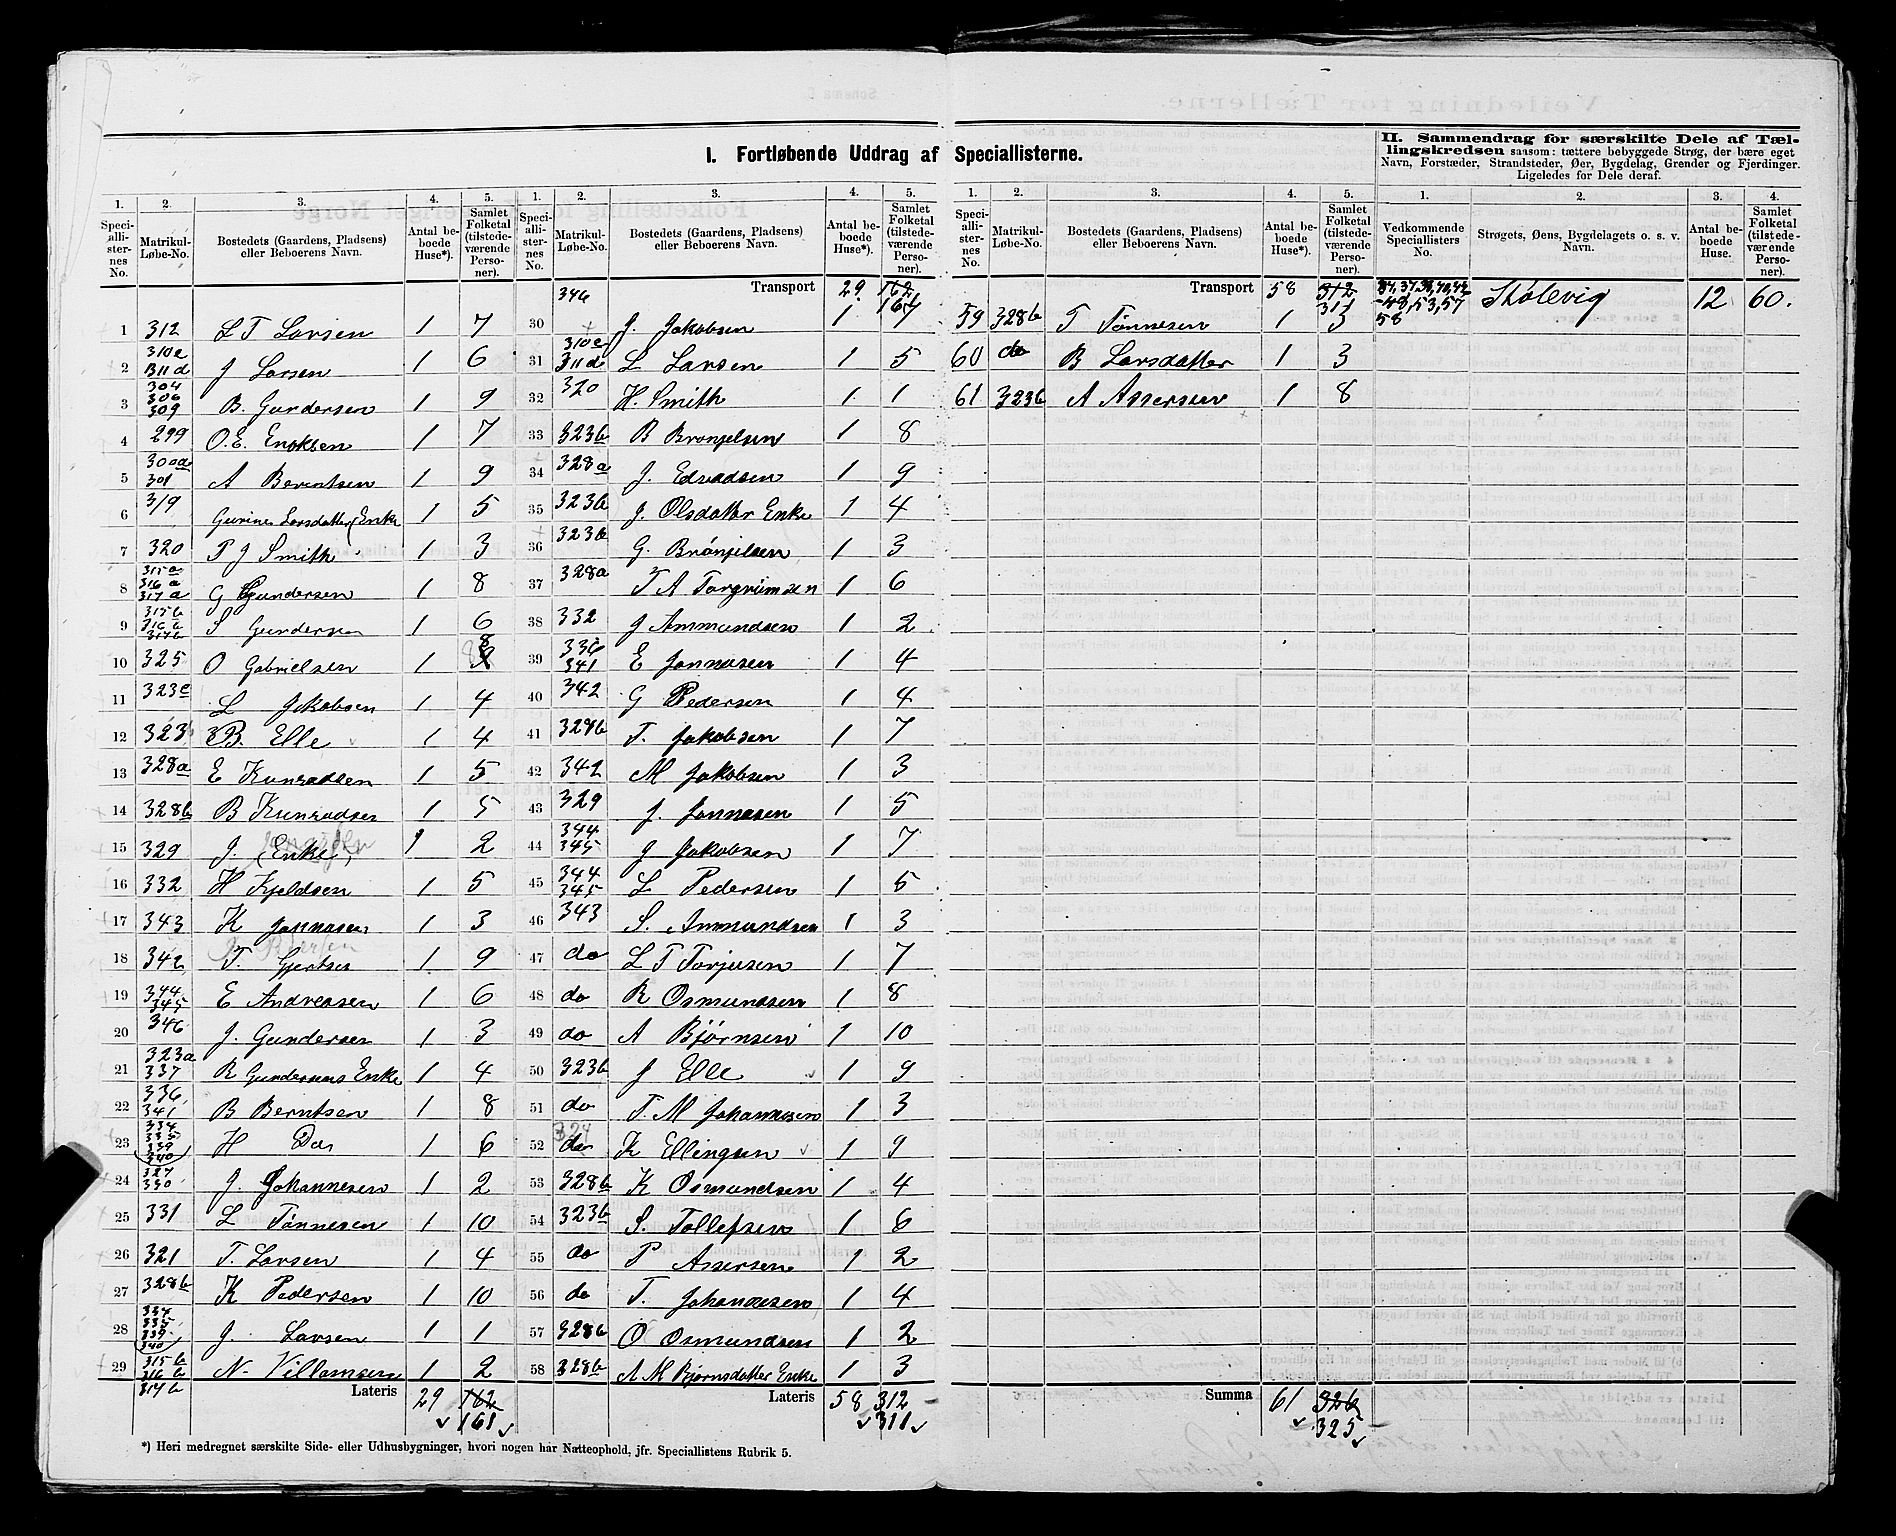 I. Fortløbende Uddrag af Speciallisterne.
II. Sammendrag for særskilte Dele af Tællingskredsen saasom: tættere bebyggede Strøg, der bære eget Navn, Forstæder, Strandsteder, Øer, Bygdelag, Grender og Fjerdinger. Ligeledes for Dele deraf.
1. 2. 3. 4. 5. 1. 2. 3. 4. 5. 1. 2. 3. 4. 5. 1. 2. 3. 4.
Speciallisternes No. Matrikul-Løbe-No. Bostedets (Gaardens, Pladsens) eller Beboerens Navn. Antal beboede Huse*). Samlet Folketal (tilstedeværende Personer).
Speciallisternes No. Matrikul-Løbe-No. Bostedets (Gaardens, Pladsens) eller Beboerens Navn. Antal beboede Huse*). Samlet Folketal (tilstedeværende Personer).
Speciallisternes No. Matrikul-Løbe-No. Bostedets (Gaardens, Pladsens) eller Beboerens Navn. Antal beboede Huse*). Samlet Folketal (tilstedeværende Personer).
Vedkommende Speciallisters No. Strøgets, Øens, Bygdelagets o. s. v. Navn. Antal beboede Huse. Samlet Folketal (tilstedeværende Personer).
1 312 L T Larsen 1 7
2 310e 311d J Larsen 1 6
3 304 306 309 B. Gundersen 1 9
4 299 O. E. Enoksen 1 7
5 300a 301 A Berentsen 1 9
6 319 Larsdatter Enke 1 5
7 320 P J Smith 1 3
8 315a 316a 317a G Gundersen 1 8
9 315b 316b 317b S Gundersen 1 6
10 325 O Gabrielsen 1 8
11 323c L Jakobsen 1 4
12 323 B. Elle 1 4
13 328a E Kunradsen 1 5
14 328b B Kunradsen 1 5
15 329 J. (Enke) 1 2
16 332 H Kjeldsen 1 5
17 343 K Jonnasen 1 3
18 342 T. Gjertsen 1 9
19 344 345 E Andreasen 1 6
20 346 J. Gundersen 1 3
21 323a 337 R Gundersens Enke 1 4
22 336 341 B Berntsen 1 8
23 334 335 339 340 H Do 1 6
24 327 330 J. Johannesen 1 2
25 331 L Tønnesen 1 10
26 321 T. Larsen 1 4
27 328b K Pedersen 1 10
28 334 335 339 340 J. Larsen 1 1
29 315b 316b 317b N. Villamsen 1 2
Lateris 29 162 161
Transport 29 162 161
30 346 J. Jakobsen 1 7
31 310e 311d L Larsen 1 5
32 320 H. Smith 1 1
33 323b B Bronjelsen 1 8
34 328a J. Edvadsen 1 9
35 323b J. Olsdatter Enke 1 4
36 323b G. Brønjelsen 1 3
37 328a T A Torgrimsen 1 6
38 332 J Ammundsen 1 2
39 336 341 E Jonnasen 1 4
40 342 G Pedersen 1 4
41 328b T. Jakobsen 1 7
42 342 M Jakobsen 1 3
43 329 J. Jonnasen 1 5
44 344 345 J Jakobsen 1 7
45 344 345 L Pedersen 1 5
46 343 S. Ammundsen 1 3
47 do L T Torjusen 1 7
48 do R Osmundsen 1 8
49 do A Bjørnsen 1 10
50 323b J Elle 1 9
51 do T. M Johannesen 1 3
52 do 324 K Ellingsen 1 9
53 328b K Osmundsen 1 4
54 323b S. Tollefsen 1 6
55 do P Assersen 1 2
56 do T. Johannesen 1 4
57 328b O Osmundsen 1 2
58 328b A M Bjørnsdatter Enke 1 3
Lateris 58 312 311
Transport 58 312 311
59 328b T Tønnesen 1 3
60 do B Larsdatter 1 3
61 323b A Assersen 1 8
Summa 61 326 325
34, 37, 38, 40, 42 -48, 53, 57 58 Skolevig 12 60.
*) Heri medregnet særskilte Side- eller Udhusbygninger, hvori nogen har Natteophold, jfr. Speciallistens Rubrik 5.